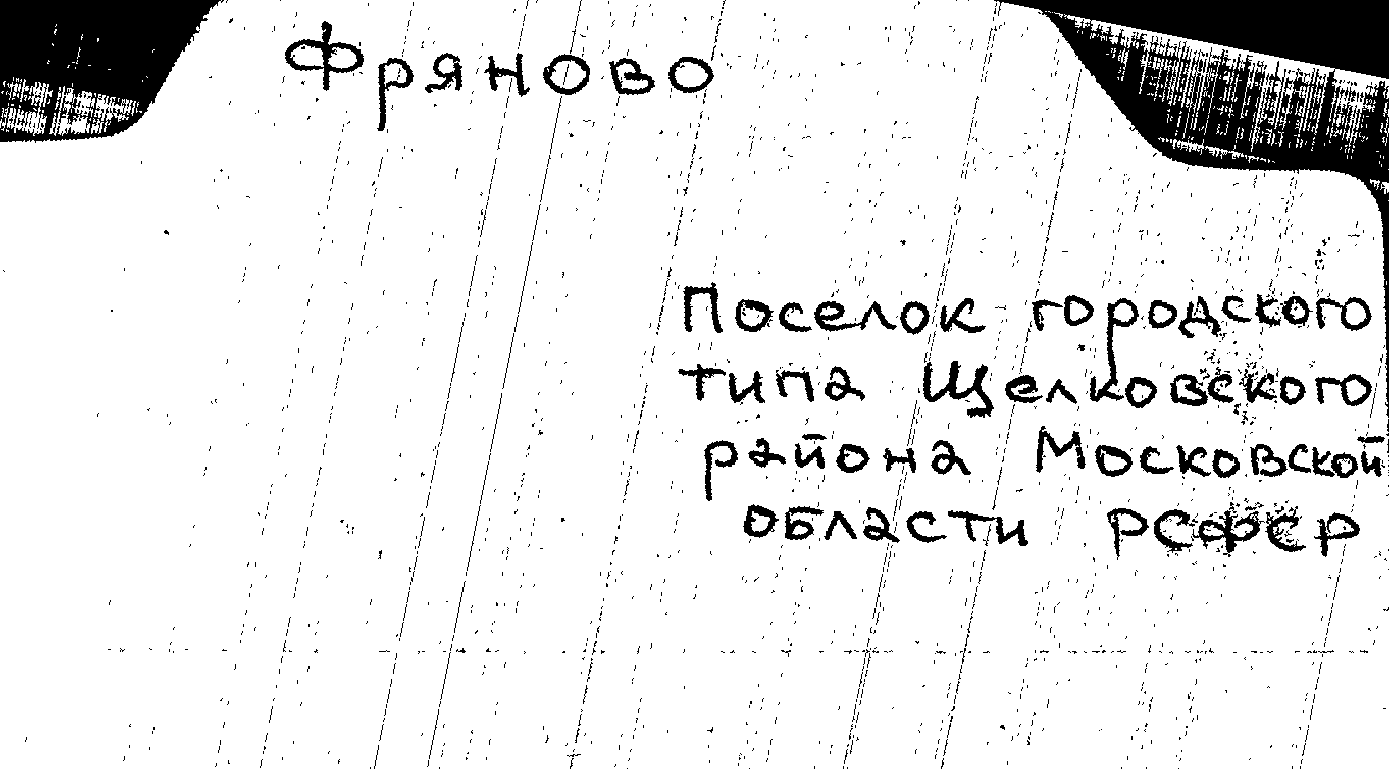 Фряново
Поселок городского
типа Щелковского
района Московской
области РСФСР